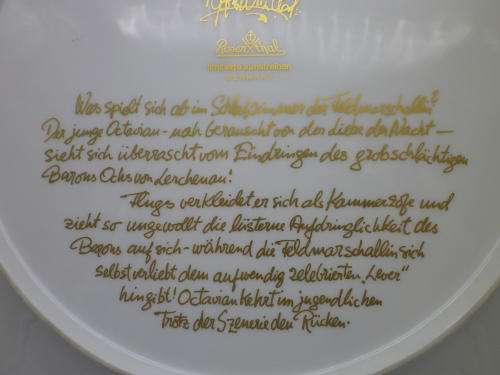 Rosenthal
Was spielt sich ab im Schlafzimmer der Feldmarschallin?
Der junge Octavian - noch berauscht von der Liebe der Nacht —
sieht sich überrascht vom Eindringen des grobschlächtigen
Barons Ochs von Lerchenau!
Flugs verkleidet er sich als Kammerzofe und
zieht so ungewollt die lüsterne Aufdringlichkeit des
Barons auf sich - während die Feldmarschallin sich
selbstverliebt dem aufwendig zelebrierten „Lever"
hingibt! Octavian kehrt im jugendlichen
Trotz der Szenerie den Rücken.